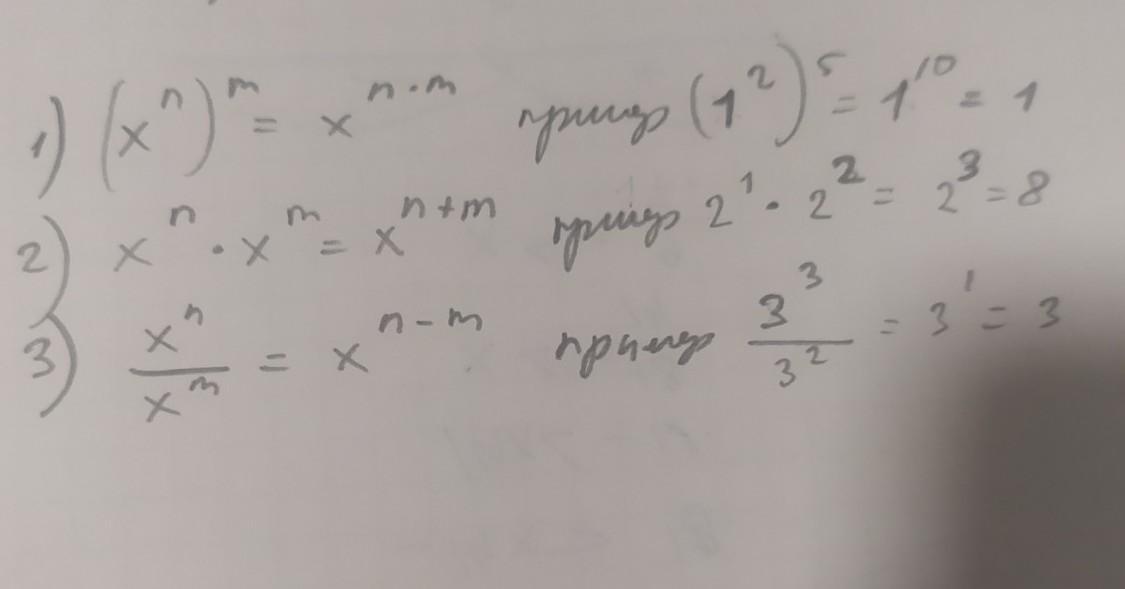 1) (xⁿ)ᵐ = xⁿ·ᵐ пример (1²)⁵ = 1¹⁰ = 1
2) xⁿ · xᵐ = xⁿ⁺ᵐ пример 2¹ · 2² = 2³ = 8
3) xⁿ/xᵐ = xⁿ⁻ᵐ пример 3³/3² = 3¹ = 3